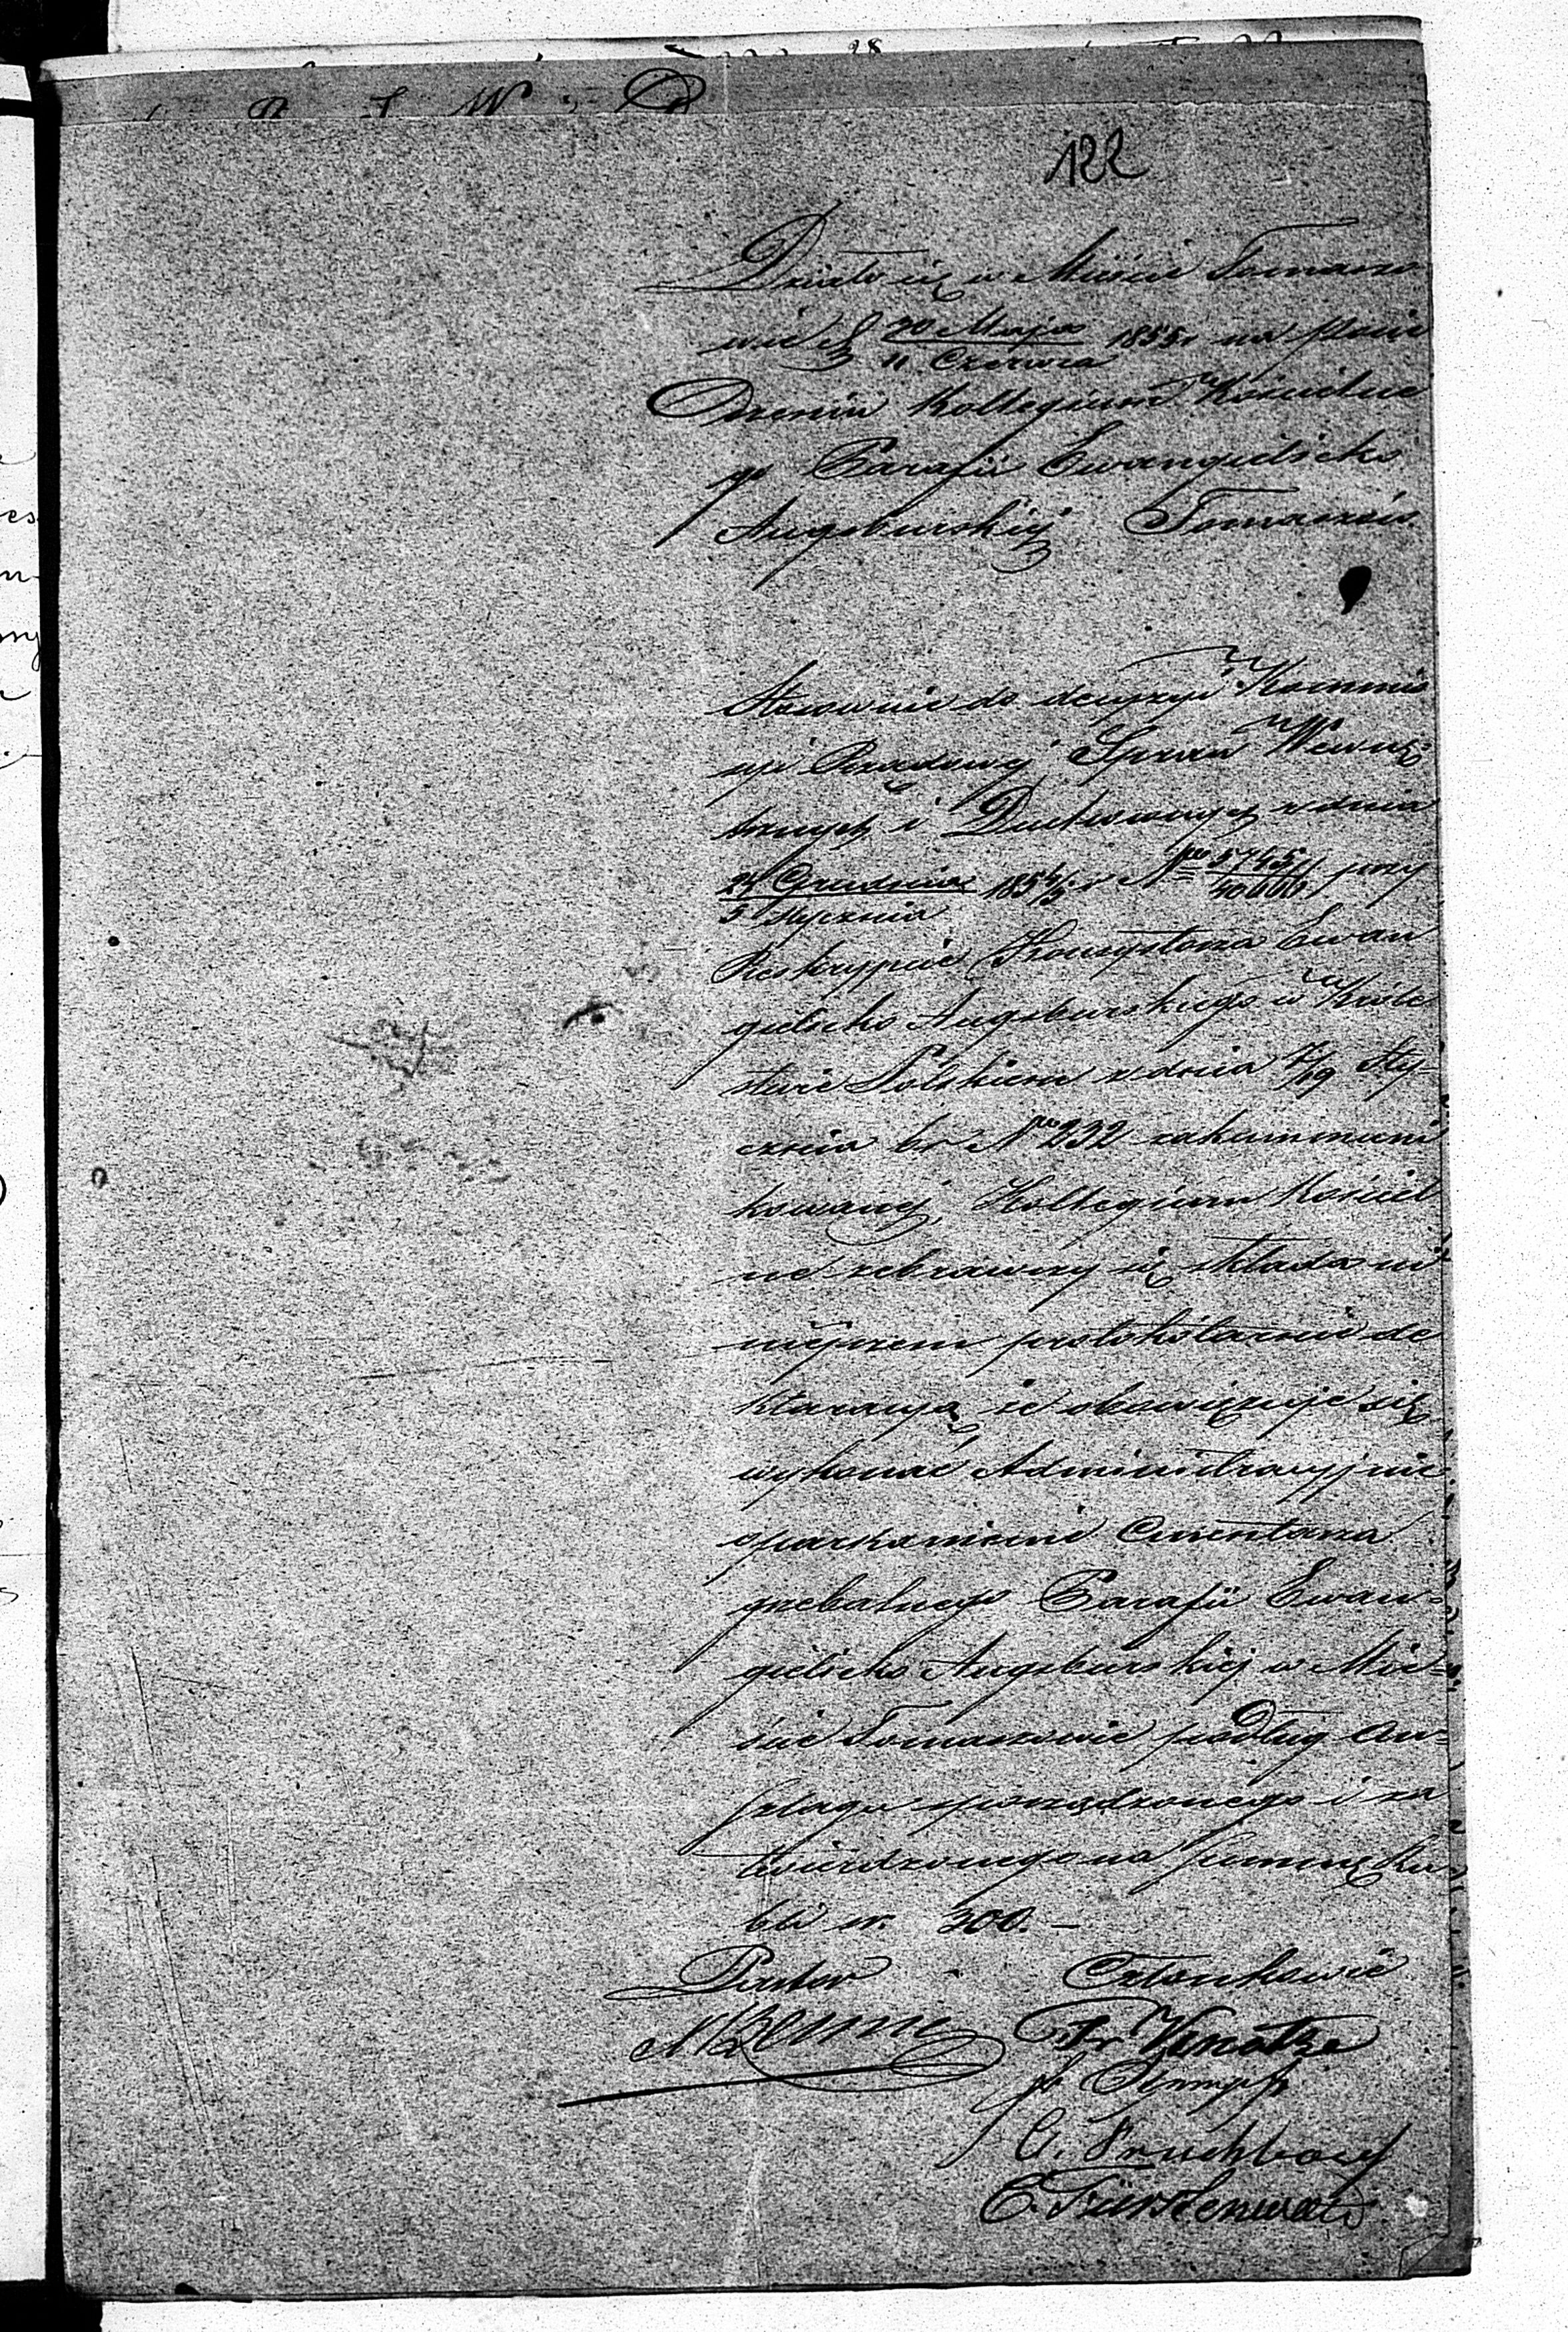 122
Działo się w Mieście Tomaszo
wie d 30 Maja / 11 Czerwca 1855 r na posie
dzeniu Kollegium Kościelne
go Parafii Ewangielicko
Augsburskiej Tomaszów
Stosownie do decyzyi Kommis
syi Rządowej Spraw Wewnę=
trznych i Duchownych z dnia
24 Grudnia / 5 Stycznia 1854/5 r No 5745/40666 przy
Reskrypcie Konsystorza Ewan
gielicko Augsburskiego w Króle
stwie Polskiem z dnia 7/19 Sty-
cznia br No 232 zakommuni
kowanej, Kollegium Kościel
ne zebrawszy się składa ni
niejszem protokolarnie de
klaracyą, że obowięzuje się
wykonać Administracyjnie
oparkanienie Cmentarza
grzebalnego Parafii Ewan=
gielicko Augsburskiej w Mie=
ście Tomaszowie podług An=
szlagu sporządzonego i za
twierdzonego na summę Ru
bli sr. 300.—
Pastor Członkowie
Fr Knothe
C. Fürstenwald